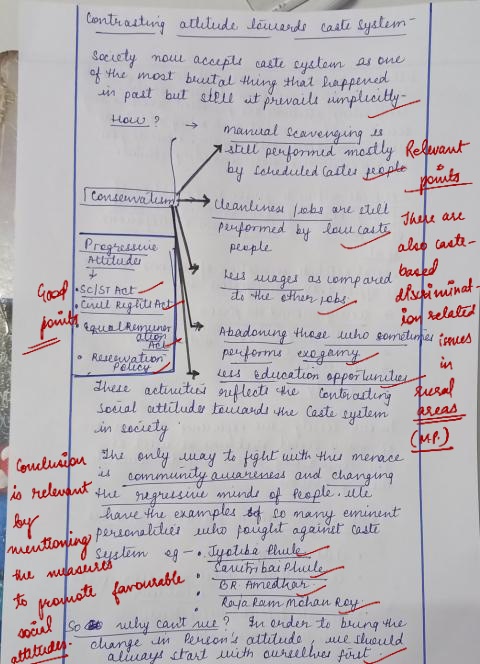 Contrasting attitude towards caste system -
Society now accepts caste system as one
of the most brutal thing that happened
in past but still it prevails implicitly.
How? →
Manual Scavenging is
still performed mostly
by scheduled castes people
Relevant
points
Conservatism
Cleanliness jobs are still
performed by low caste
people
Less wages as compared
to the other jobs.
Abadoning those who sometimes
performs exogamy
less education opportunities
There are
also caste-
based
discriminat-
ion related
issues
in
rural
areas
(M.P.)
Progressive
Attitudes
↓
• SC/ST Act
• Civil Rights Act
• Equal Remuner
ation
Act
• Reservation
Policy
Good
points
These activities reflect the contrasting
social attitudes towards the caste system
in society.
The only way to fight with this menace
is community awareness and changing
the regressive minds of people. We
have the examples of so many eminent
personalities who fought against caste
system eg - • Jyotiba Phule
• Savitribai Phule
• B.R. Amedkar
• Raja Ram Mohan Roy.
So why can't we? In order to bring the
change in Person's attitude, we should
always start with ourselves first.
Conclusion
is relevant
by
mentioning
the measures
to promote favourable
social
attitudes.